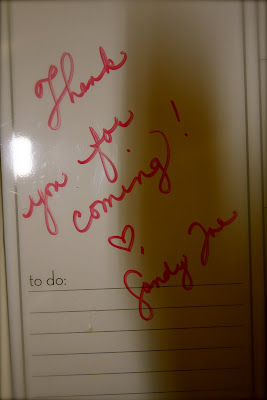 Thank
you for
coming!
♡,
Sandy Jae
to do: